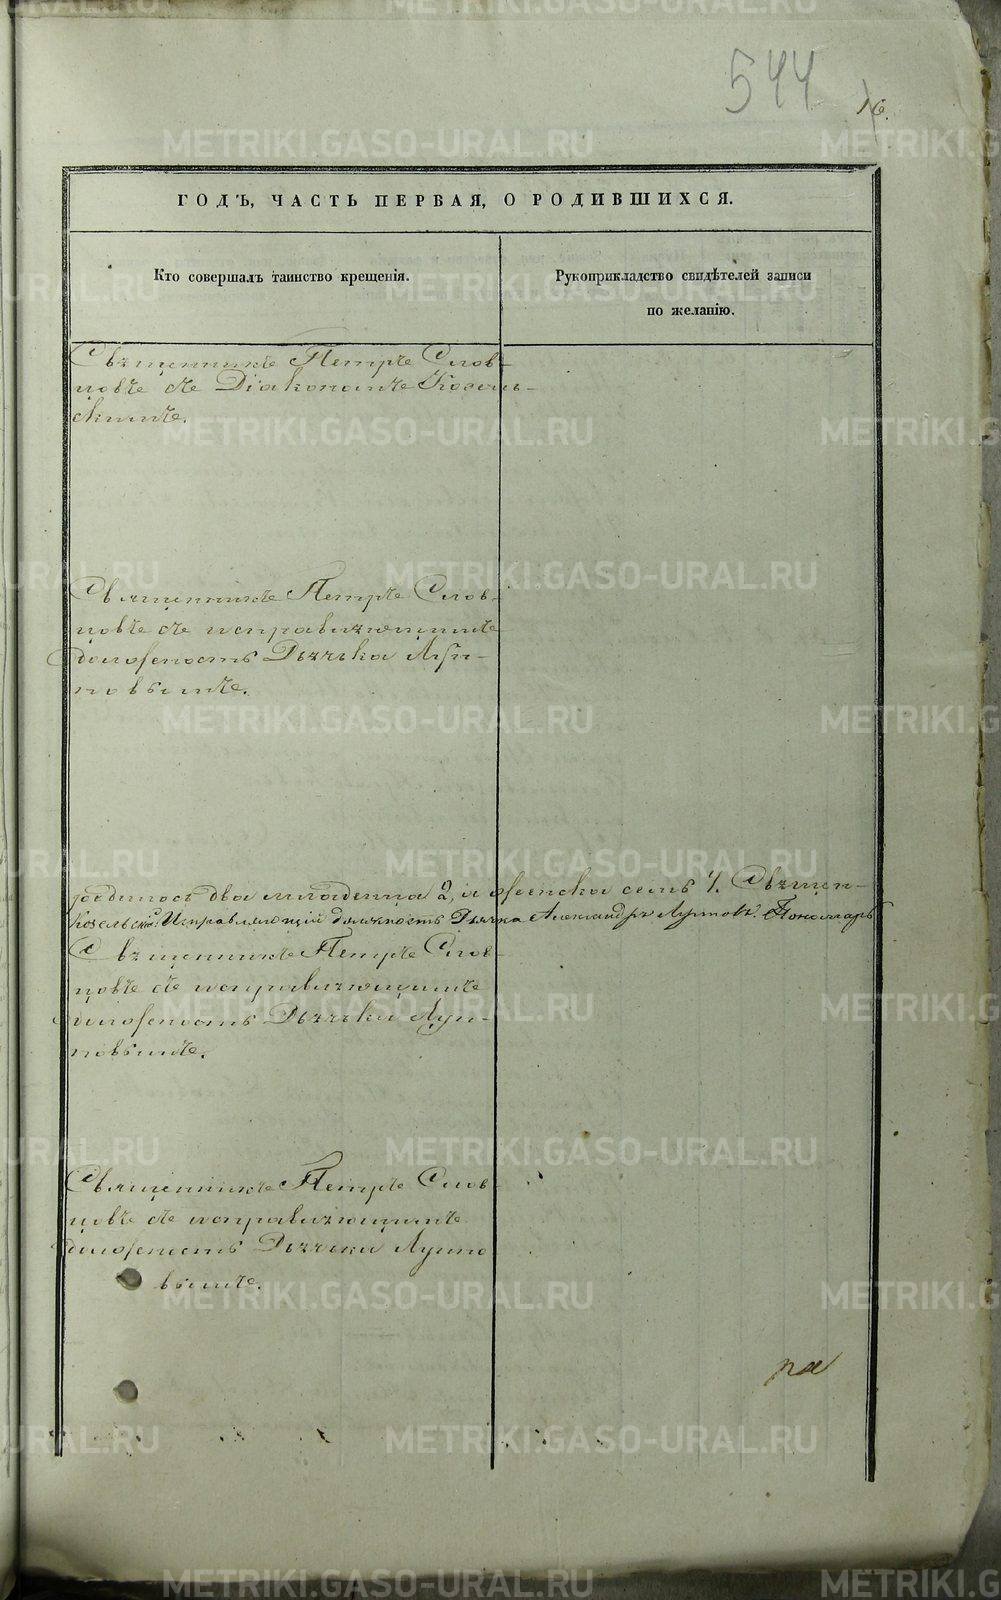 544
16.
ГОДЪ, ЧАСТЬ ПЕРВАЯ, О РОДИВШИХСЯ.
Кто совершалъ таинство крещенія.
Рукоприкладство свидѣтелей записи
по желанію.
Священникъ Петръ Слов-
цовъ съ Діакономъ Козель-
скимъ.
Священникъ Петръ Слов-
цовъ съ исправляющимъ
должность Дьячка Луп-
повымъ.
родилось два младенца 2, и женска семь 7. Священ-
Козельскій. Исправляющій должность Дьячка Александръ Лупповъ. Пономарь
Священникъ Петръ Слов-
цовъ съ исправляющимъ
должность Дьячка Луп-
повымъ.
Священникъ Петръ Слов-
цовъ съ исправляющимъ
должность Дьячка Луппо
вымъ.
ра
METRIKI.GASO-URAL.RU